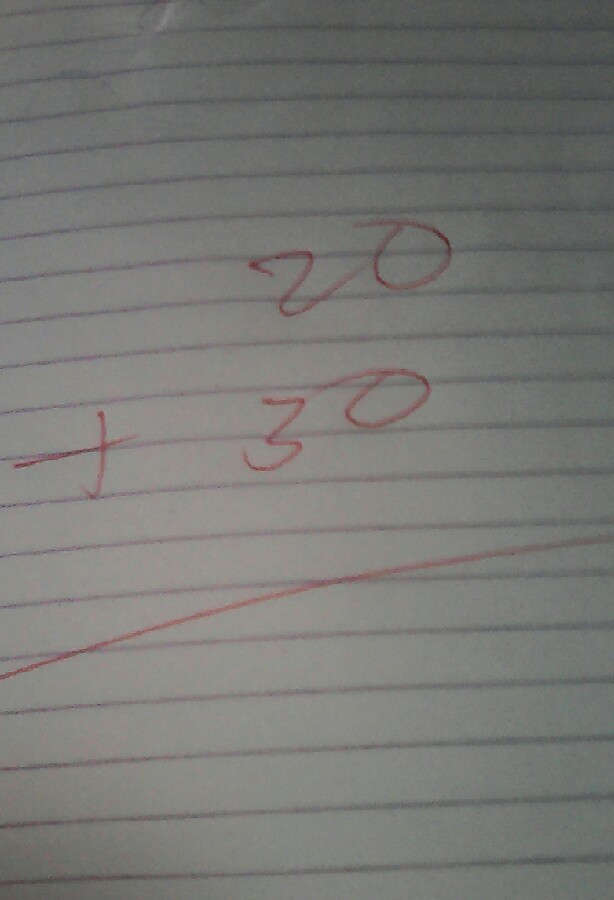 20
+ 30